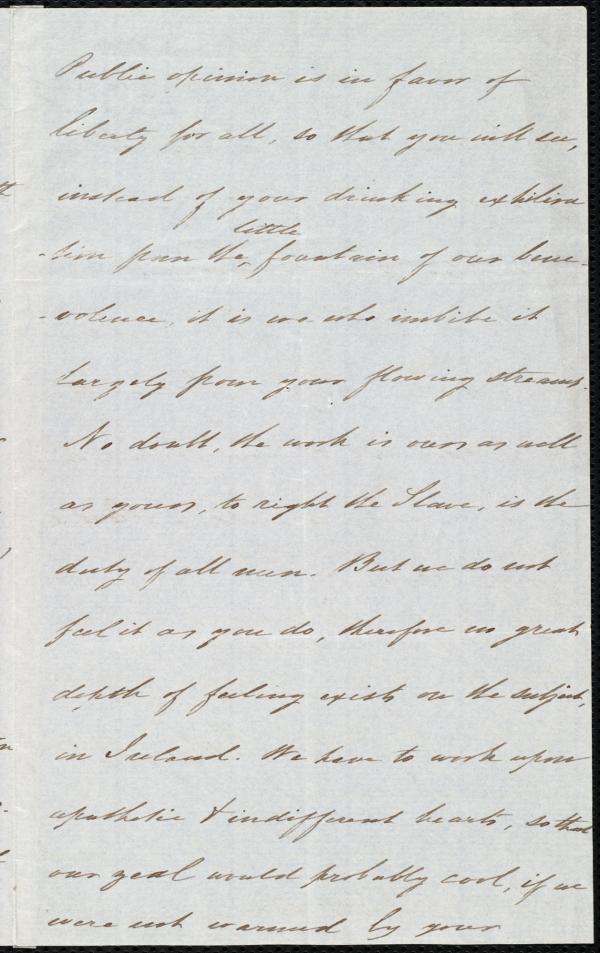 Public opinion is in favor of
liberty for all, so that you will see,
instead of your drinking exhilira
-tion from the little fountain of our bene-
-volence, it is we who imbibe it
largely from your flowing streams.
No doubt, the work is ours as well
as yours, to right the Slave, is the
duty of all men. But we do not
feel it as you do, therefore no great
depth of feeling exists on the subject,
in Ireland. We have to work upon
apathetic & indifferent hearts, so that
our zeal would probably cool, if we
were not warmed by your